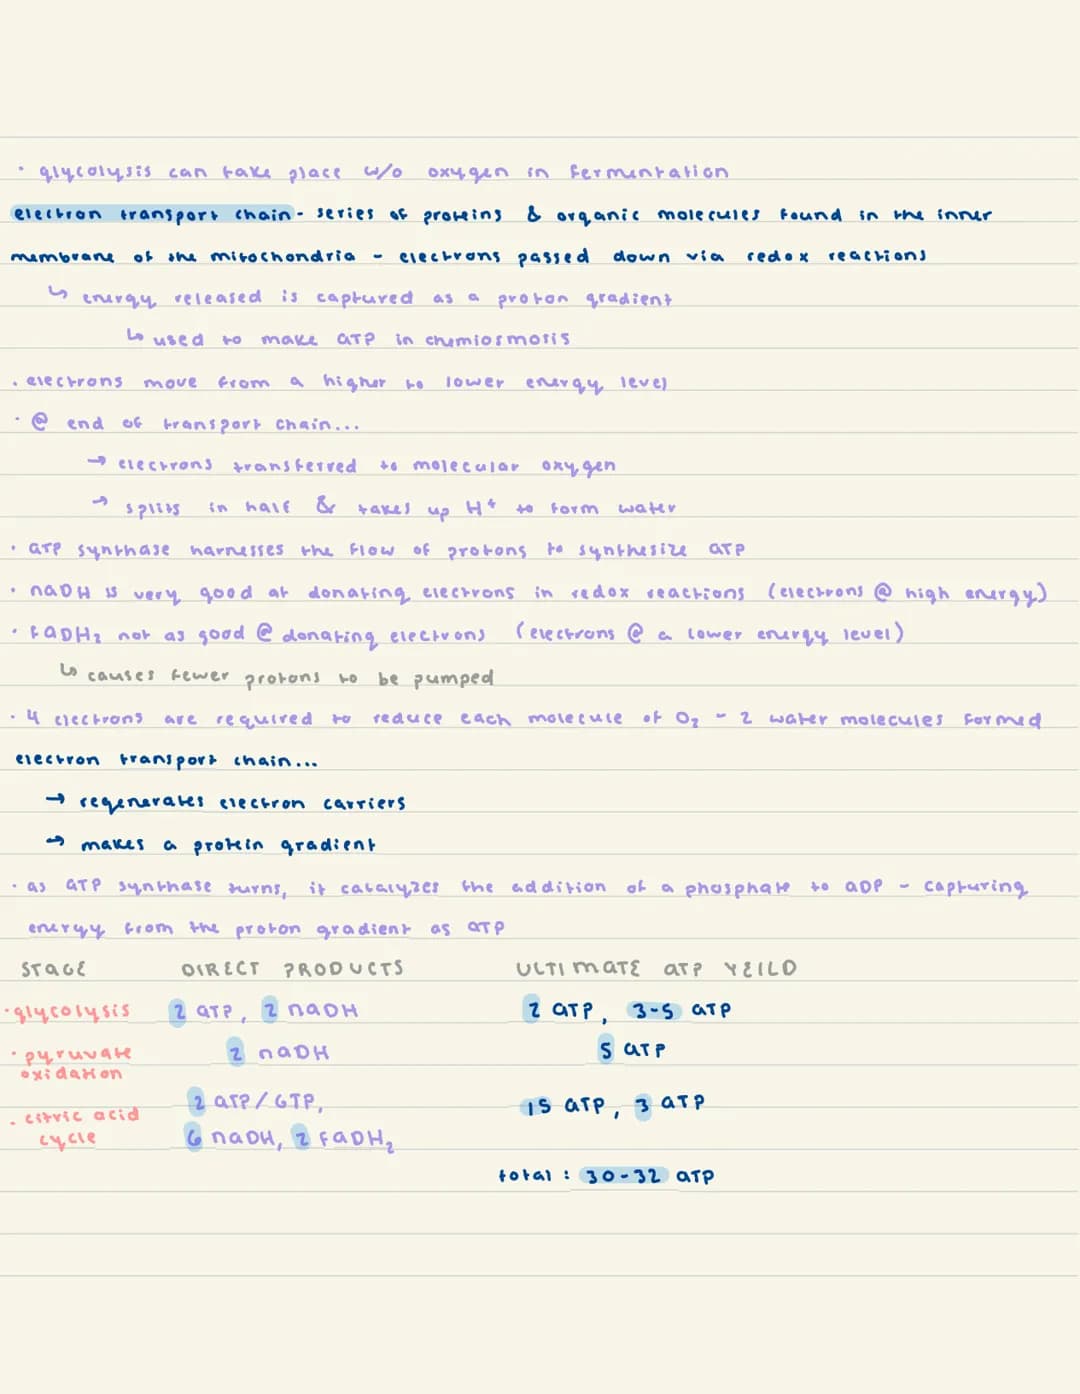 · glycolysis can take place w/o oxygen in fermentation
electron transport chain - series of proteins & organic molecules found in the inner
membrane of the mitochondria - electrons passed down via redox reactions
↳ energy released is captured as a proton gradient
↳ used to make ATP in chemiosmosis
· electrons move from a higher to lower energy level
· @ end of transport chain...
→ electrons transferred to molecular oxygen
→ splits in half & takes up H+ to form water
· ATP synthase harnesses the flow of protons to synthesize ATP
· NADH is very good at donating electrons in redox reactions (electrons @ high energy)
· FADH₂ not as good @ donating electrons (electrons @ a lower energy level)
↳ causes fewer protons to be pumped
· 4 electrons are required to reduce each molecule of O₂ - 2 water molecules formed
electron transport chain...
→ regenerates electron carriers
→ makes a protein gradient
· as ATP synthase turns, it catalyzes the addition of a phosphate to ADP - capturing
energy from the proton gradient as ATP
STAGE DIRECT PRODUCTS ULTIMATE ATP YEILD
· glycolysis 2 ATP, 2 NADH 2 ATP, 3-5 ATP
· pyruvate 2 NADH 5 ATP
oxidation
2 ATP/GTP, 15 ATP, 3 ATP
· citric acid
cycle 6 NADH, 2 FADH₂
total: 30-32 ATP